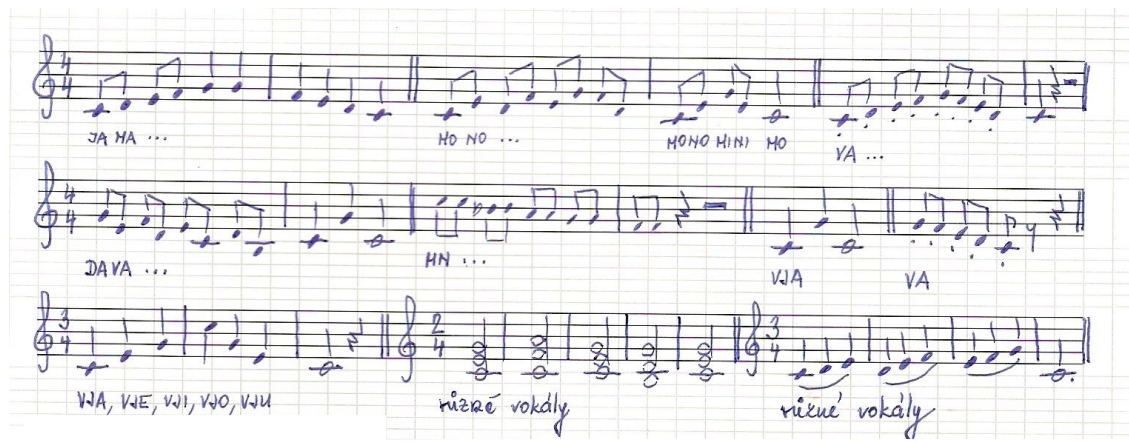 4 4
JA MA ... MO NO ... MONO MINI MO VA ...
4 4
DAVA ... MN ... VJA VA
3 4 2 4 3 4
VJA, VJE, VJI, VJO, VJU různé vokály různé vokály